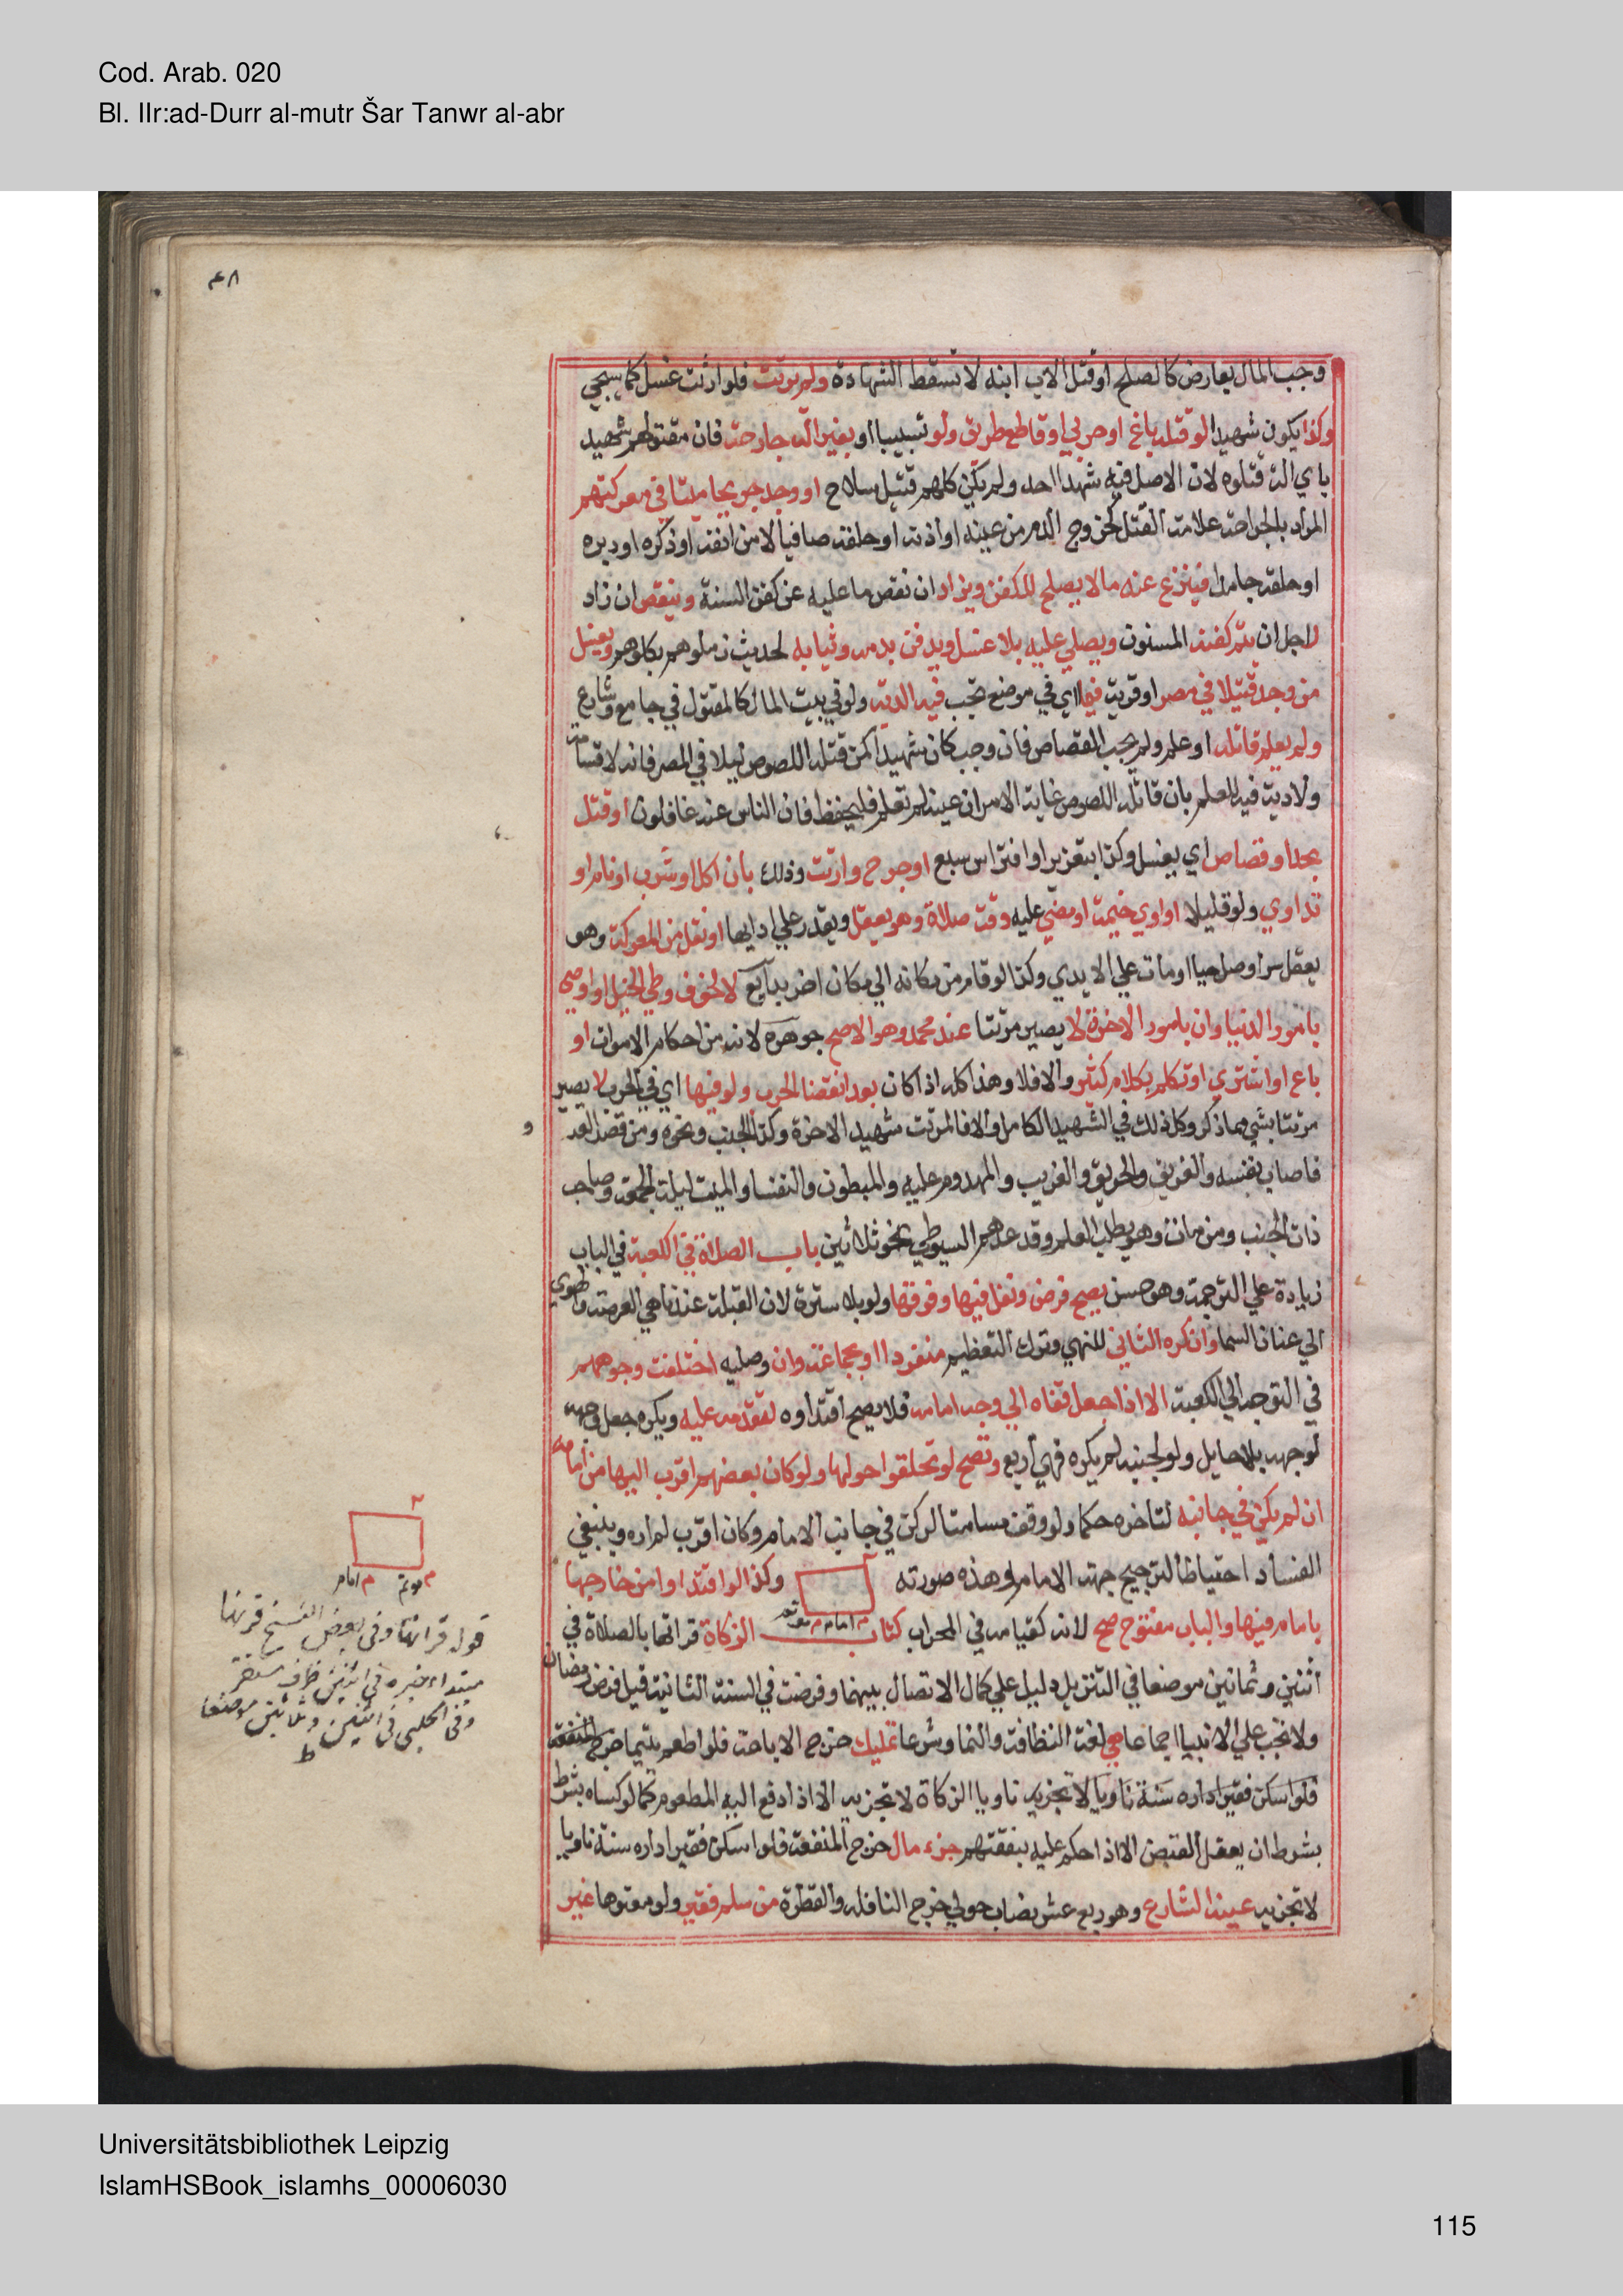 Cod. Arab. 020
Bl. IIr:ad-Durr al-mutr Šar Tanwr al-abr
٤٨
وجب المال بعارض كالصلح او قتل الاب ابنه لا تسقط الشهادة ولم يرتث فلو ارتث غسل كما سيجي
وكذا يكون شهيدا لو قتله باغ او حربي او قاطع طريق ولو تسببا او بغير الة جارحة فان مقتولهم شهيد
باي الة قتلوه لان الاصل فيه شهدا احد ولم يكن كلهم قتيل سلاح او وجد جريحا ميتا في معركتهم
المراد بالجراحة علامة القتل كخروج الدم من عينه او اذنه او حلقه صافيا لا من انفه او ذكره او دبره
او حلقه جامدا فينزع عنه ما لا يصلح للكفن ويزاد ان نقص ما عليه عن كفن السنة وينقص ان زاد
لاجل ان يتم كفنه المسنون ويصلي عليه بلا غسل ويدفن بدمه وثيابه لحديث زملوهم بكلومهم ويغسل
من وجد قتيلا في مصر او قرية فيما اي في موضع تجب فيه الدية ولو في بيت المال كالمقتول في جامع وشارع
ولم يعلم قاتله او علم ولم يجب القصاص فان وجب كان شهيدا كمن قتله اللصوص ليلا في المصر فانه لا قسامة
ولا دية فيه للعلم بان قاتله اللصوص غاية الامر ان عينه لم تعلم فليحفظ فان الناس عنه غافلون او قتل
بحد او قصاص اي يغسل وكذا بتعزير او افتراس سبع او جرح وارتث وذلك بان اكل او شرب او نام او
تداوي ولو قليلا او اوي خيمة او مضي عليه وقت صلاة وهو يعقل ويقدر علي ادايها او نقل من المعركة وهو
يعقل سوا وصل حيا او مات علي الايدي وكذا لو قام من مكانه الي مكان اخر بدايع لا لخوف وطي الخيل او اوصي
بامور الدنيا وان بامور الاخرة لا يصير مرتثا عند محمد وهو الاصح جوهرة لانه من احكام الاموات او
باع او اشتري او تكلم بكلام كثير والا فلا وهذا كله اذا كان بعد انقضا الحرب ولو فيها اي في الحرب لا يصير
مرتثا بشي مما ذكر وكل ذلك في الشهيد الكامل والا فالمرتث شهيد الاخرة وكذا الجنب ونحوه ومن قصد العدو
فاصاب نفسه والغريق والحريق والغريب والمهدوم عليه والمبطون والنفسا والميت ليلة الجمعة وصاحب
ذات الجنب ومن مات وهو يطلب العلم وقد عدهم السيوطي نحو ثلاثين باب الصلاة في الكعبة في الباب
زيادة علي الترجمة وهو حسن يصح فرض ونفل فيها وفوقها ولو بلا سترة لان القبلة عندنا هي العرصة والهوي
الي عنان السما وان كره الثاني للنهي وترك التعظيم منفردا او بجماعة وان وصليه اختلفت وجوههم
في التوجه الي الكعبة الا اذا جعل قفاه الي وجه امامه فلا يصح اقتداوه لتقدمه عليه ويكره جعل وجهه
لوجهه بلا حايل ولو لجنبه لم يكره فهي اربع وتصح لو تحلقوا حولها ولو كان بعضهم اقرب اليها من امامه
ان لم يكن في جانبه لتاخره حكما ولو وقف مسامتا لركن في جانب الامام وكان اقرب لم اره وينبغي
الفساد احتياطا لترجيح جهة الامام وهذه صورته وكذا لو اقتدوا من خارجها
م امام م موتم
بامام فيها والباب مفتوح صح لانه كقيامه في المحراب كتاب الزكاة قرانها بالصلاة في
اثنين وثمانين موضعا في التنزيل دليل علي كمال الاتصال بينهما وفرضت في السنة الثانية قبل فرض رمضان
ولا تجب علي الانبيا اجماعا هي لغة النظافة والنما وشرعا تمليك خرج الاباحة فلو اطعم يتيما خرج المنفعة
فلو اسكن فقيرا داره سنة ناويا لا تجزيه ناويا الزكاة لا تجزيه الا اذا دفع اليه المطعوم كما لو كساه بشرط
بشرط ان يعقل القبض الا اذا حكم عليه بنفقتهم جزء مال خرج المنفعة فلو اسكن فقيرا داره سنة ناويا
لا تجزيه عينه الشارع وهو ربع عشر نصاب حولي خرج النافلة والفطرة من مسلم فقير ولو معتوها غير
م موتم م امام
قوله قرانها وفي بعض النسخ قرنها
مبتدا خبره في اثنين ظرف مستقر
وفي الحلبي في اثنين وثلاثين موضعا
ط
Universitätsbibliothek Leipzig
IslamHSBook_islamhs_00006030
115